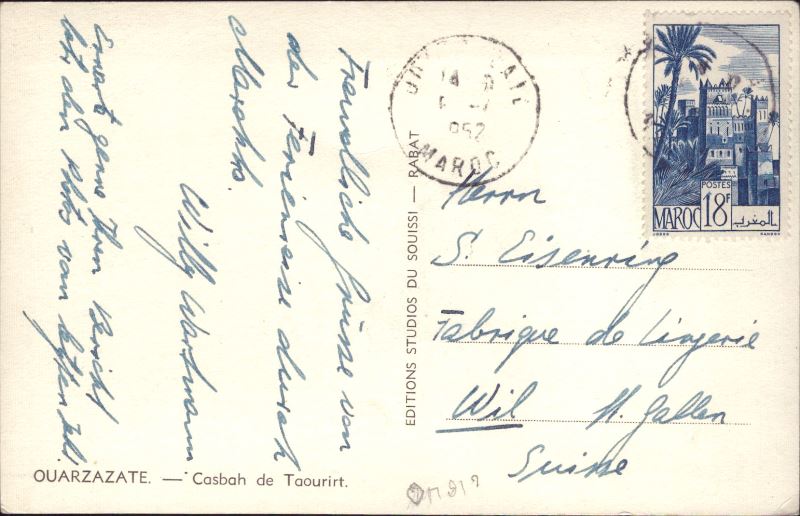 Freundliche Grüsse von
der Ferienreise durch
Marokko.
Willy Wartmann
Erwarte gerne Ihren Bericht
btr. den Platz von letzten
OUARZAZATE. — Casbah de Taourirt.
EDITIONS STUDIOS DU SOUISSI — RABAT
MAROC
952
POSTES
MAROC 18F المغرب
Herrn
S. Eisenring
Fabrique de Lingerie
Wil St. Gallen
Suisse